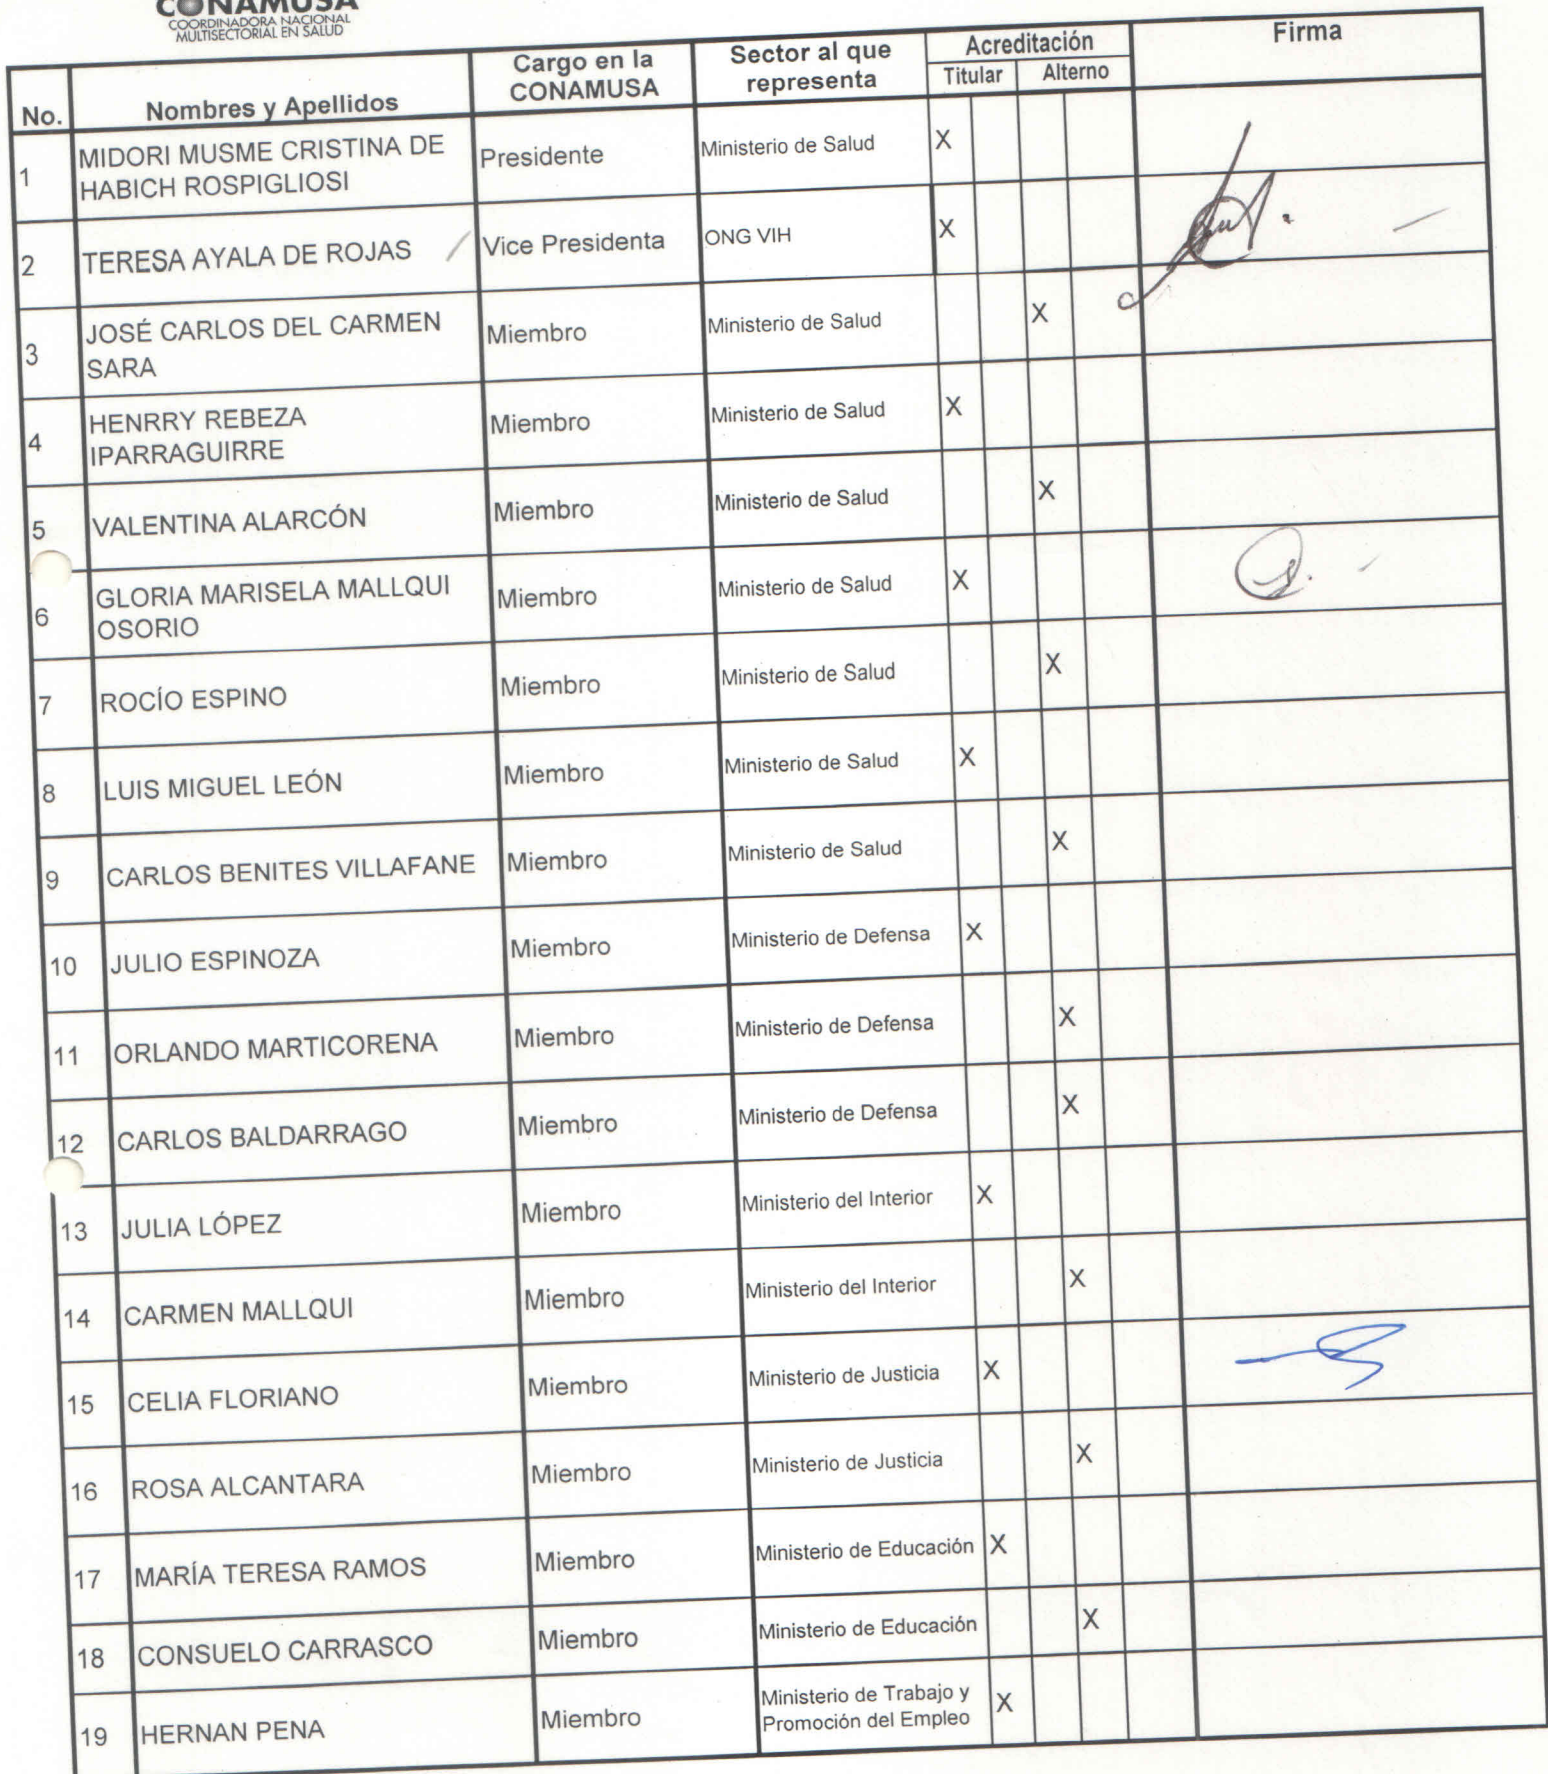 CONAMUSA
COORDINADORA NACIONAL
MULTISECTORIAL EN SALUD
No. Nombres y Apellidos Cargo en la CONAMUSA Sector al que representa Acreditación Titular Alterno Firma
1 MIDORI MUSME CRISTINA DE HABICH ROSPIGLIOSI Presidente Ministerio de Salud X
2 TERESA AYALA DE ROJAS Vice Presidenta ONG VIH X
3 JOSÉ CARLOS DEL CARMEN SARA Miembro Ministerio de Salud X
4 HENRRY REBEZA IPARRAGUIRRE Miembro Ministerio de Salud X
5 VALENTINA ALARCÓN Miembro Ministerio de Salud X
6 GLORIA MARISELA MALLQUI OSORIO Miembro Ministerio de Salud X
7 ROCÍO ESPINO Miembro Ministerio de Salud X
8 LUIS MIGUEL LEÓN Miembro Ministerio de Salud X
9 CARLOS BENITES VILLAFANE Miembro Ministerio de Salud X
10 JULIO ESPINOZA Miembro Ministerio de Defensa X
11 ORLANDO MARTICORENA Miembro Ministerio de Defensa X
12 CARLOS BALDARRAGO Miembro Ministerio de Defensa X
13 JULIA LÓPEZ Miembro Ministerio del Interior X
14 CARMEN MALLQUI Miembro Ministerio del Interior X
15 CELIA FLORIANO Miembro Ministerio de Justicia X
16 ROSA ALCANTARA Miembro Ministerio de Justicia X
17 MARÍA TERESA RAMOS Miembro Ministerio de Educación X
18 CONSUELO CARRASCO Miembro Ministerio de Educación X
19 HERNAN PENA Miembro Ministerio de Trabajo y Promoción del Empleo X